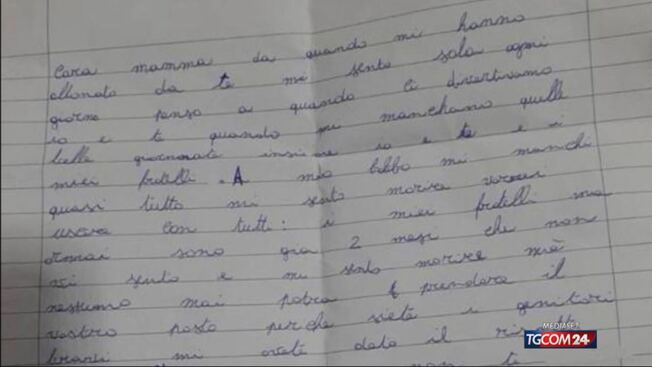 Cara mamma da quando mi hanno
allonato da te mi sento sola ogmi
giorno penso a quando ci divertivamo
io e te quando mi manchano quelle
belle giornorate insieme io e te e i
miei fratelli . A mio babbo mi manchi
quasi tutto mi sento morira vorrei
uscira con tutti : i miei fratelli ma
ormai sono gia 2 mesi che non
vi sento e mi sento morire
nessuno mai potra prendara il
vostro posto perche siete i genitori
bravi mi avete dato il
non te
MEDIASET
TGCOM24